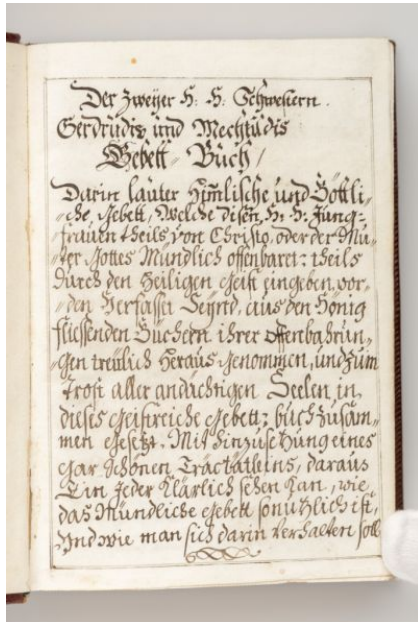 Der Zweyer H: H: Schwestern.
Gerdrudis und Mechtildis
Gebett- Buch/
Darin lauter Him̄lische und Göttli-
-che Gebett, Welche disen H: H: Jung=
frauen theils von Christo, oder der Mu-
-ter Gottes Mündlich offenbaret: theils
durch den Heiligen Geist eingeben wor-
-den Verfasset Seynd, aus den Hönig
fliessenden Büchern ihrer offenbahrun-
-gen treulich Heraus Genommen, und zum
trost aller andächtigen Seelen, in
dieses Geistreiche Gebett: buch zusam̄-
men Gesetzt. Mit hinzusetzung eines
Gar Schönen Tractätleins, daraus
Ein Jeder Klärlich sehen Kan, wie
das Mündliche Gebett so nützlich ist,
Und wie man sich darin Verhalten soll